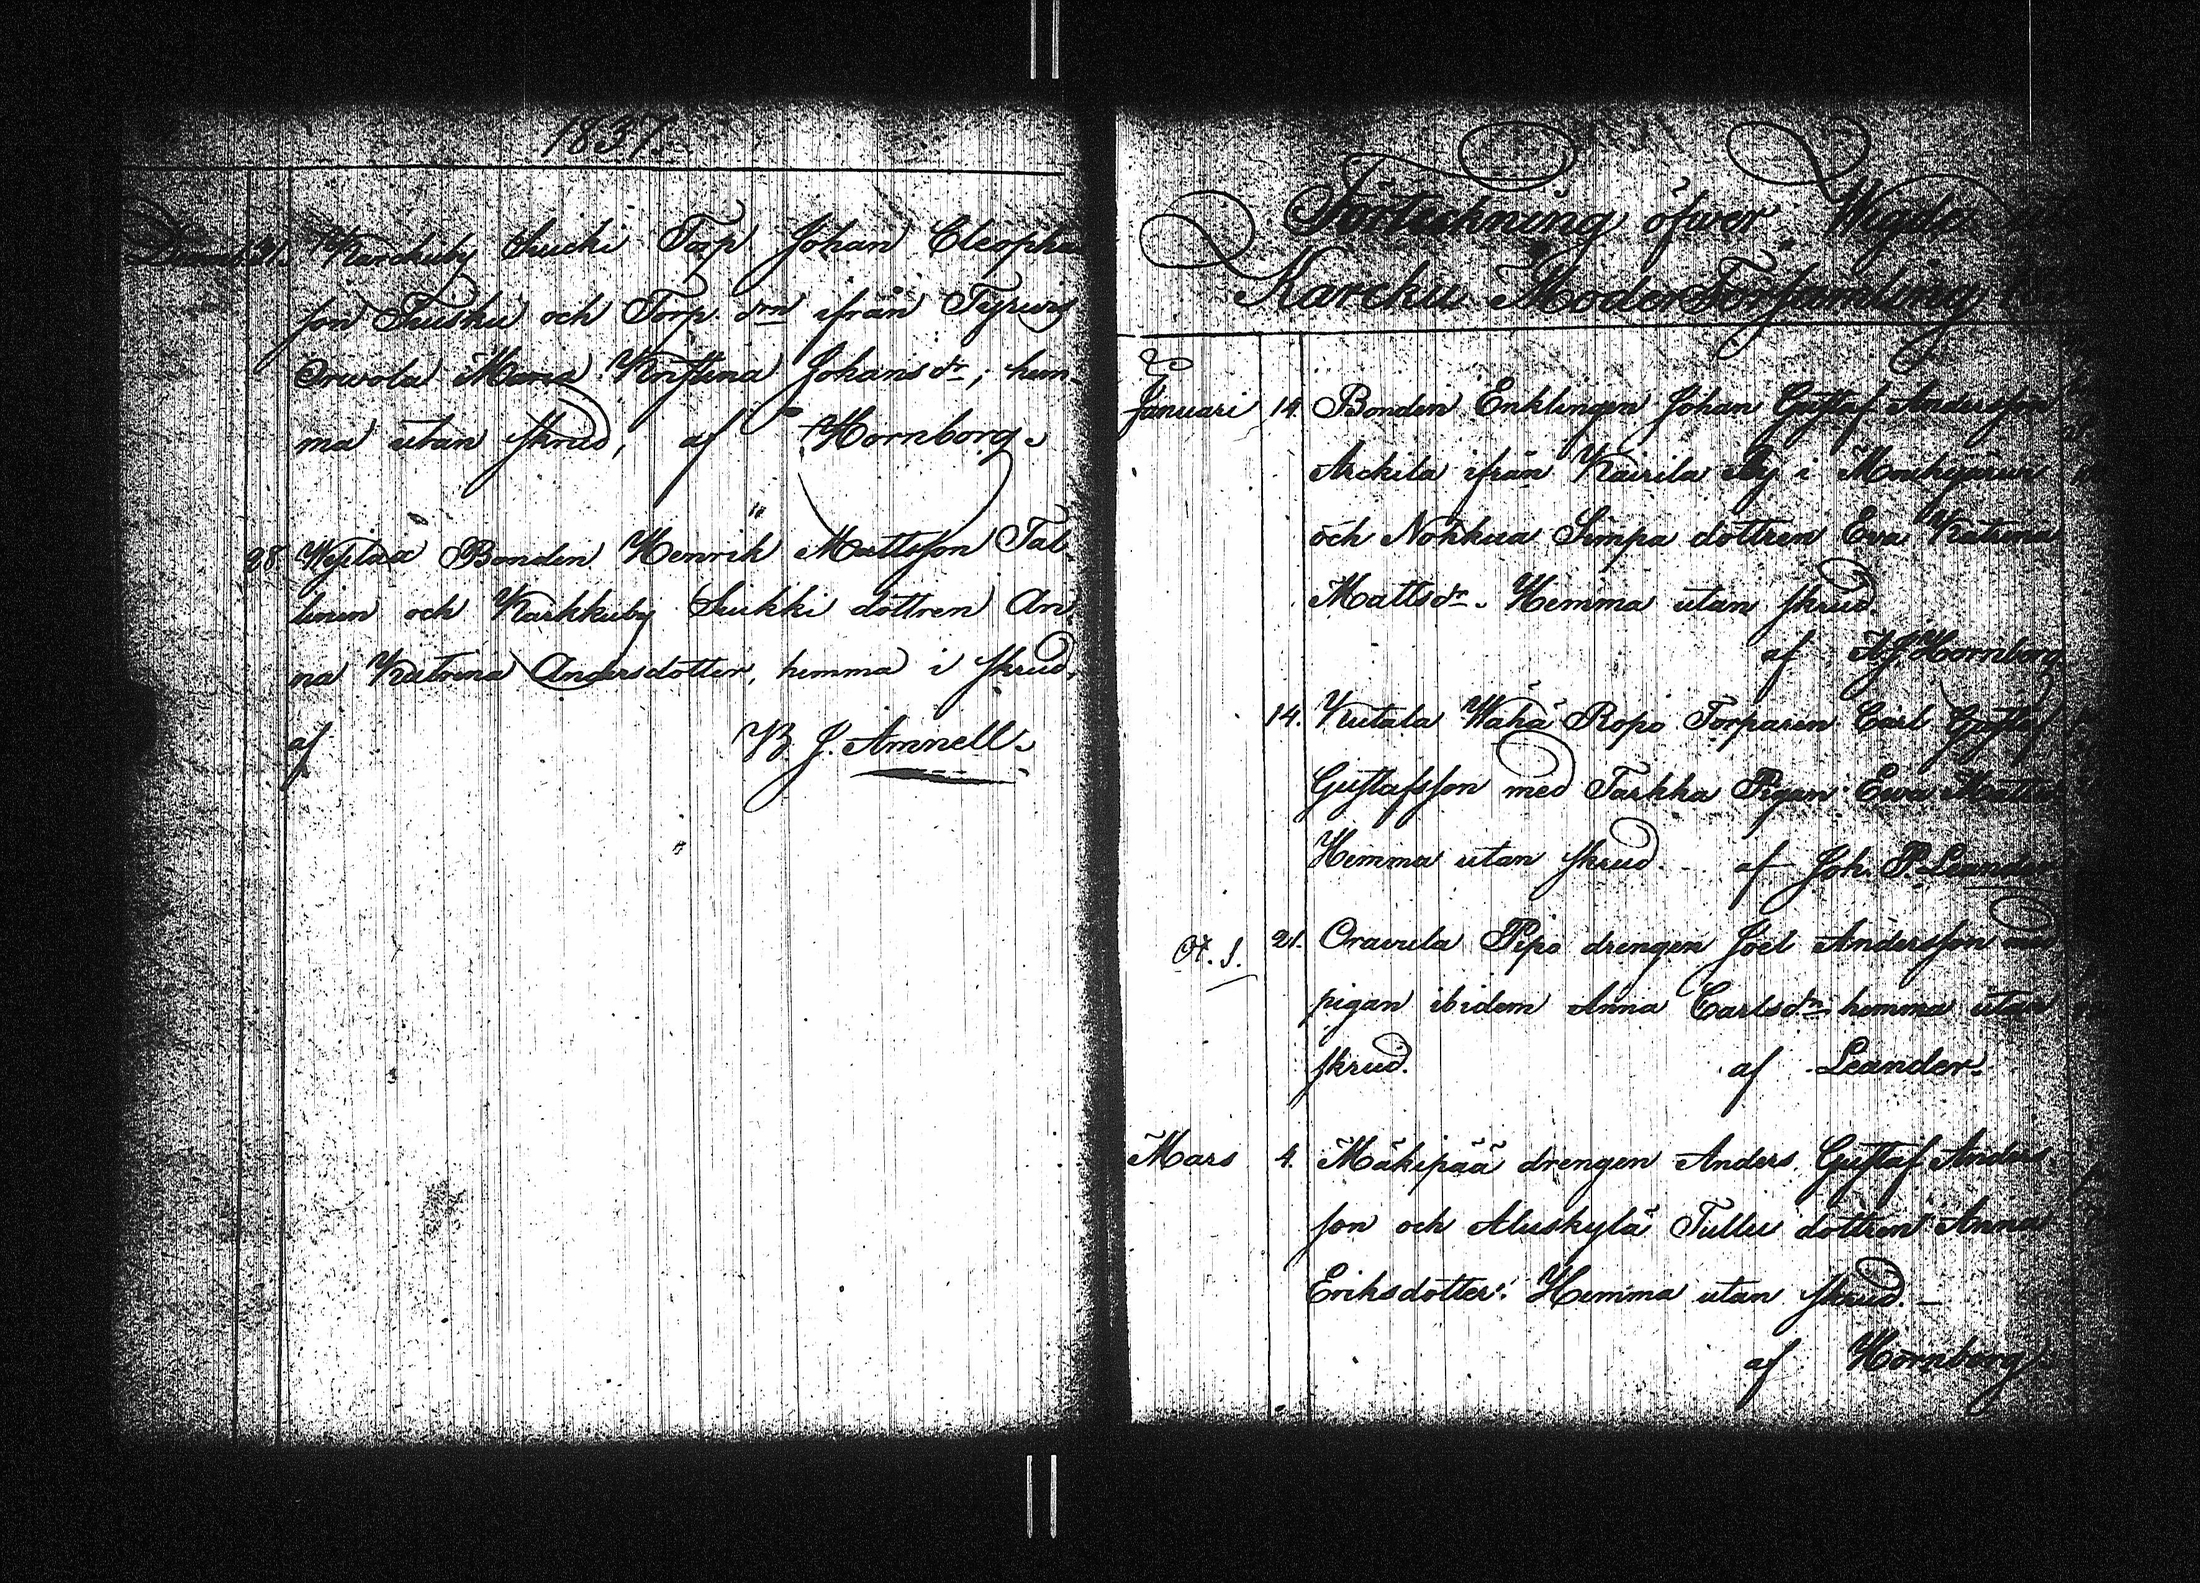 1837.
31. Karckuby Sucki Torp Johan Cleopha
son Tuisku och Torp. drn ifrån Tyrwis
Orwola Maria Kristina Johansdr; hem-
ma utan skrud, af Hornborg.
28 Bonden Henrik Mattsson Tal-
linen och Karkkuby Sukki dottren An-
na Katrina Andersdotter, hemma i skrud.
af J. Amnell.
Förteckning öfwer Wigde
Karcku Moder Församling
Januari 14. Bonden Enklingen Johan Gustaf Andersson
Arckila ifrån Kairila By i
och Nokkua Simpa dottren Eva Katrina
Mattsdr. Hemma utan skrud.
af Hornborg
14. Kutala Wähä Ropo Torparen Carl Gustaf
Gustafsson med Tarkka Pigan Ewa Matts
Hemma utan skrud af Joh. P. Leander
21. Oravula Pipo drengen Joel Andersson med
pigan ibidem Anna Carlsdr hemma utan
skrud. af Leander.
Mars 4. Mäkipää drengen Anders Gustaf Anders
son och Aluskylä Tullu dottren Anna
Eriksdotter. Hemma utan skrud.
af Hornborg